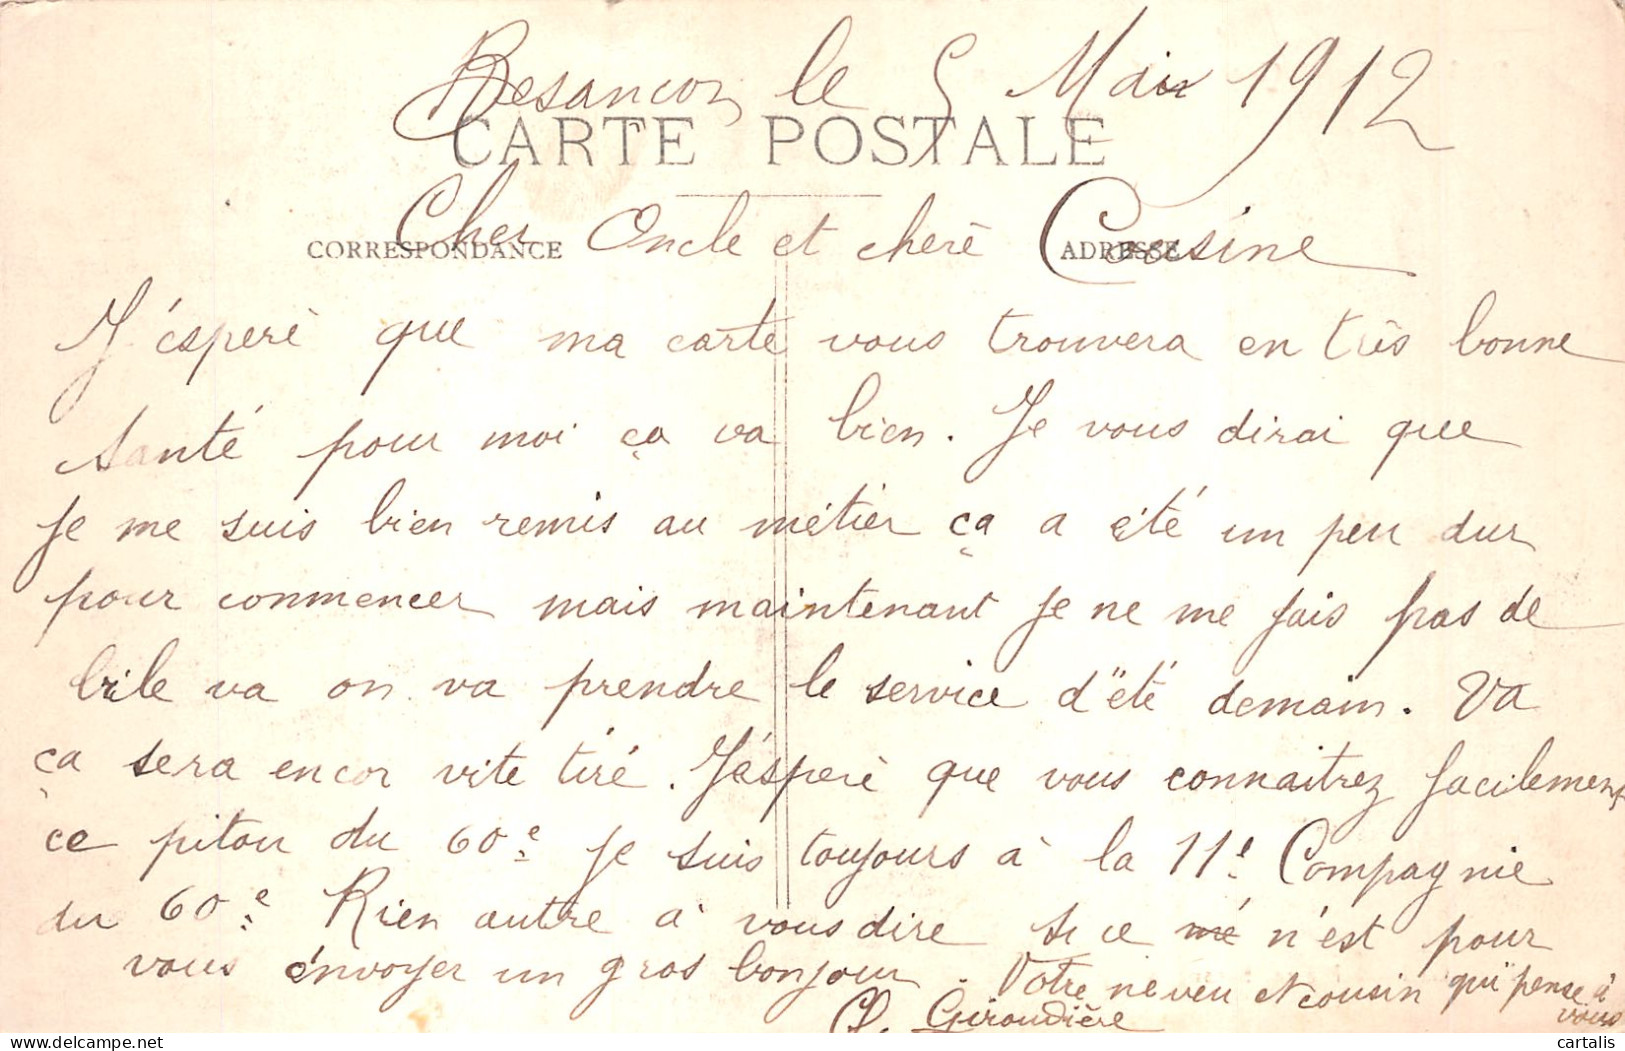 Besancon le 5 Mai 1912
CARTE POSTALE
Cher Oncle et cherè Cousine
CORRESPONDANCE ADRESSE
J'ésperè que ma carte vous trouvera en très bonne
santé pour moi ça va bien. Je vous dirai que
je me suis bien remis au métier ça a été un peu dur
pour commencer mais maintenant je ne me fais pas de
bile va on va prendre le service d'été demain. Va
ça sera encor vite tiré. J'ésperè que vous connaitrez facilement
ce pitou du 60e je suis toujours à la 11e Compagnie
du 60e Rien autre à vous dire si ce n'est pour
vous énvoyer un gros bonjour. Votre neveu et cousin qui pense à
vous
Giroudière
delcampe.net
cartalis